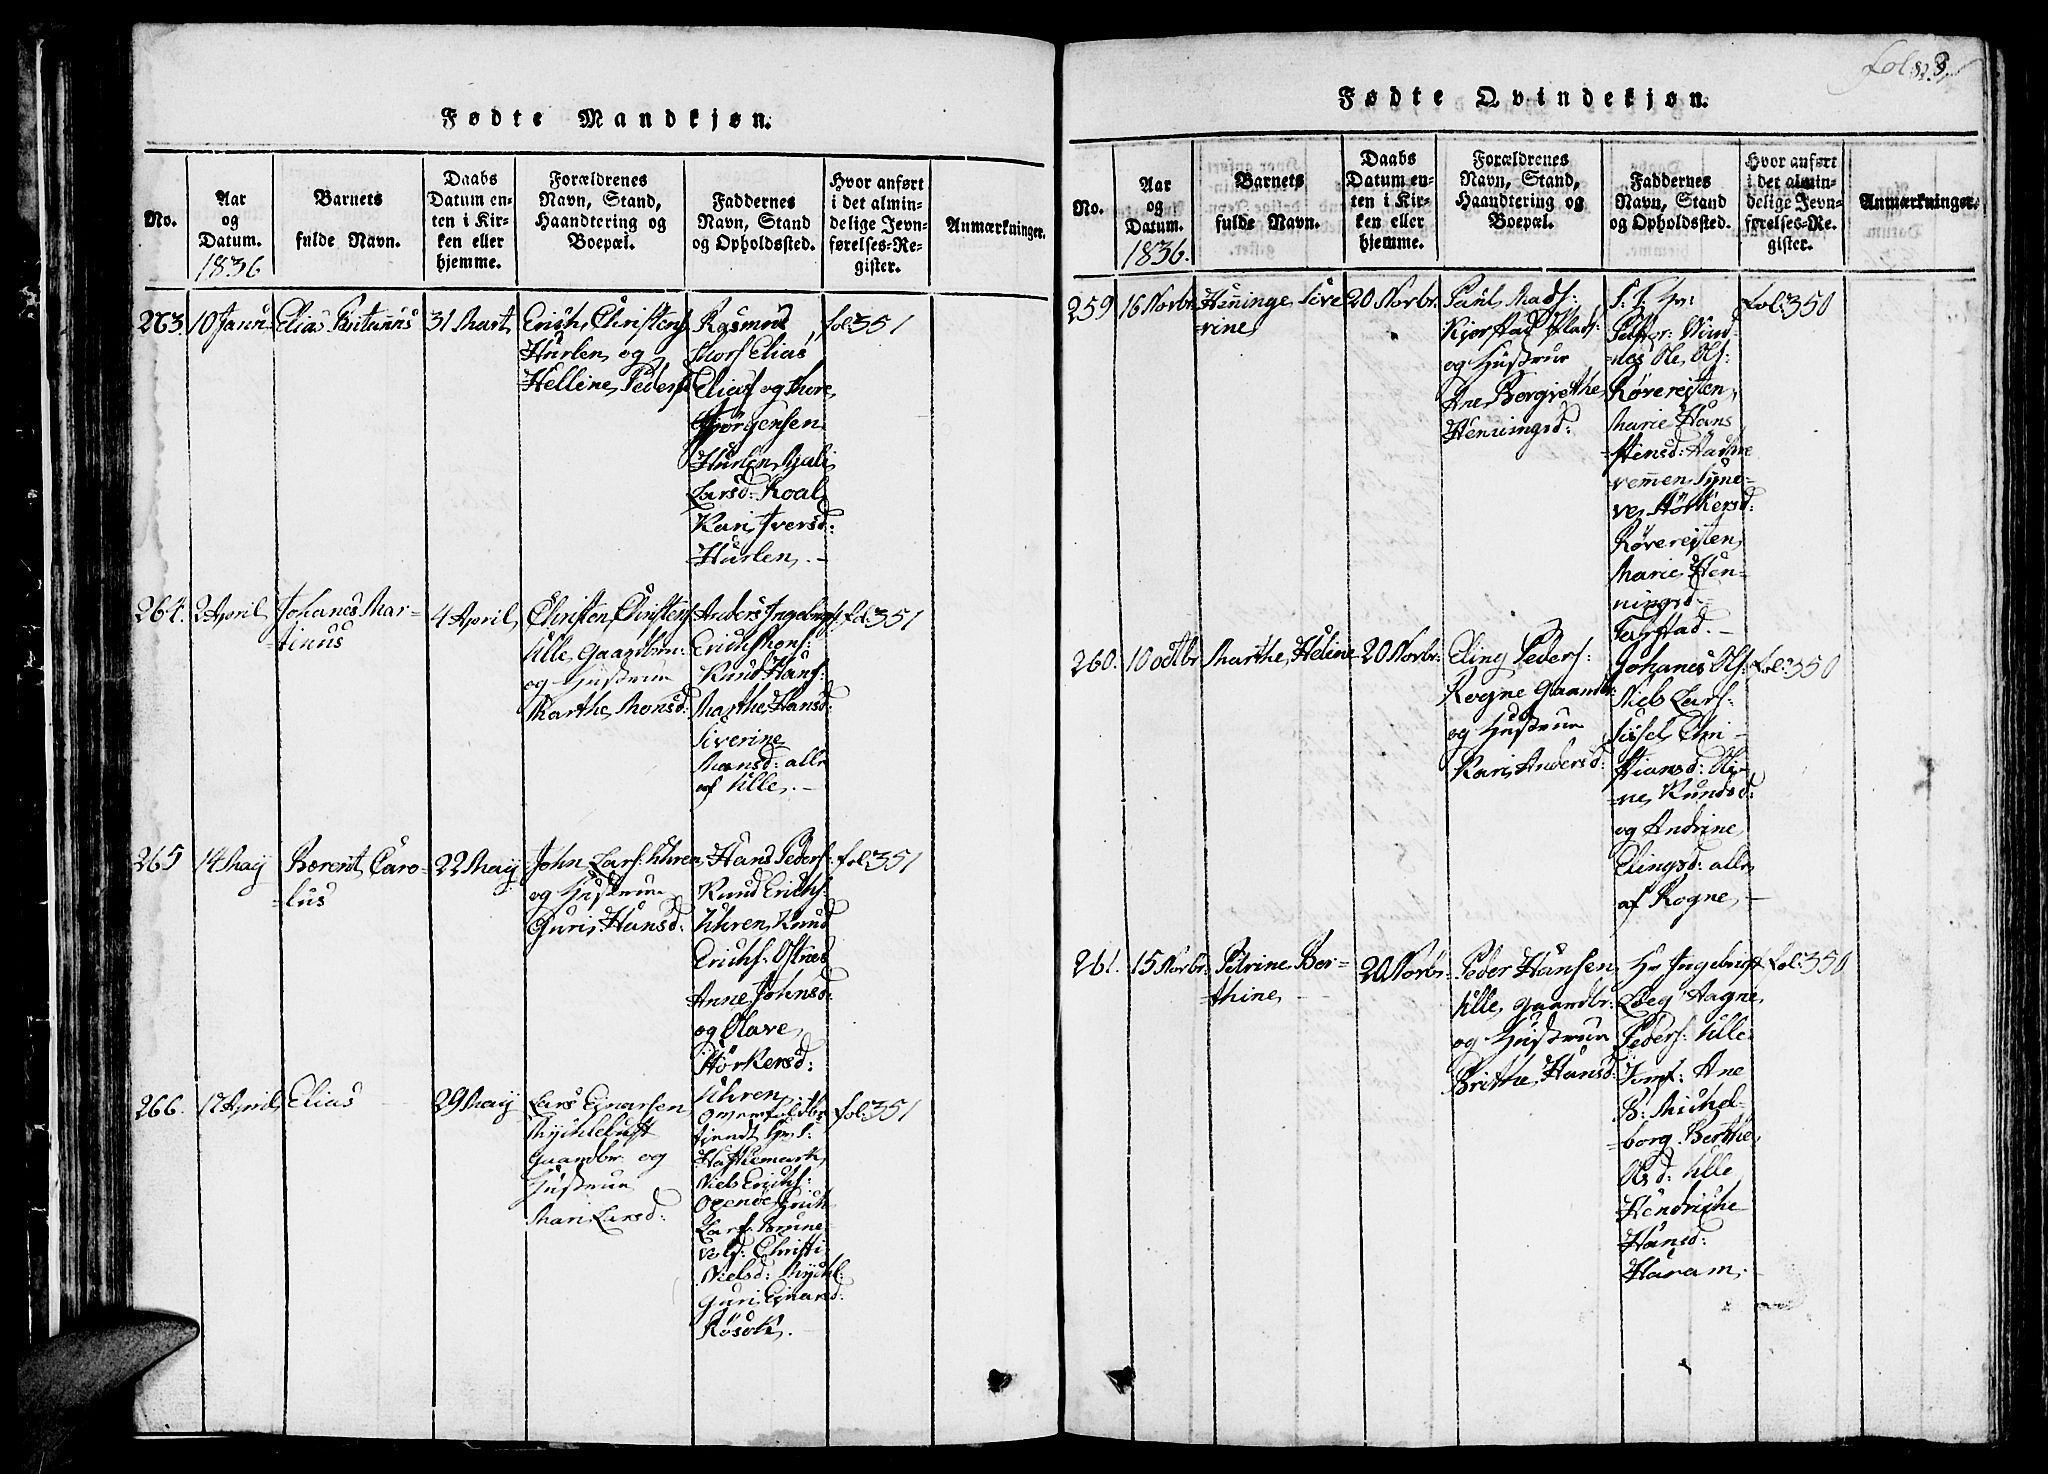 Fødte Mandkjøn.
No.
Aar
og
Datum.
1836
Barnets
fulde Navn.
Daabs
Datum en-
ten i Kir-
ken eller
hjemme.
Forældrenes
Navn, Stand,
Haandtering og
Boepæl.
Faddernes
Navn, Stand
og Opholdssted.
Hvor anført
i det almin-
delige Jevn-
førelses-Re-
gister.
Anmærkninger.
263. 10 Janu
Elias
31 Mart
Erich Christens
Hurlen og
Helline Peders
Rasmus
Elias
Eliass og Thore
Jørgensen
Hurlen, Mali
Larsd: Roal
Kari Iversd:
Hurlen. -
fol: 351
264. 2 April
Johanes Mar-
tinus
4 April
Christen Christens
Ulle, Gaardbru:
og Hustrue
Marthe Monsd:
Anders Ingebrigts
Erich Mons:
Knud Hans:
Marthe Hansd:
Siverine
Monsd: alle
af Ulle. -
fol: 351
265 14 May
Berent Caro-
lus
22 May
John Lars: Uhren
og Hustrue
Guri Hansd:
Hans Peders:
Knud Erichs:
Uhren, Knud
Erichs: Ostnes
Anne Johnsd:
og Olave
Størkersd:
Uhren
fol: 351
266. 17 April
Elias
29 May
Lars Ejnarsen
Myhlebust
Gaardbr: og
Hustrue
Mari Larsd:
Niels Erichs:
Erich
Lars: Brune-
vold: Christi
Nielsd: Mychl:
Guri Ejnarsd:
Røsok. -
fol: 351
fol: 83.
Fødte Qvindekjøn.
No.
Aar
og
Datum.
1836.
Barnets
fulde Navn.
Daabs
Datum en-
ten i Kir-
ken eller
hjemme.
Forældrenes
Navn, Stand,
Haandtering og
Boepæl.
Faddernes
Navn, Stand
og Opholdssted.
Hvor anført
i det almin-
delige Jevn-
førelses-Re-
gister.
Anmærkninger.
259 16 Novbr.
Henninge Sive-
rine
20 Novbr.
Paul Mads:
Kjerstad Plads:
og Hustrue
Ane Bergrethe
Henningsd:
S. T. Hr:
Ole Ols:
Røverejten,
Marie Hans
Syne-
ve Størkersd:
Røverejten,
Marie Hen-
ningsd:
Fabstad. -
fol: 350
260. 10 Octbr
Marthe Heline
20 Novbr:
Eling Peders:
Rogne Gaardbr:
og Hustrue
Kari Andersd:
Johanes Ols:
Niels Lars:
Sissel Chri-
stiansd: Oli-
ne Knudsd:
og Andrine
Elingsd: alle
af Rogne. -
fol: 350
261. 15 Novbr:
Petrine Ber-
thine
20 Novbr:
Peder Hansen
Ulle, Gaardbr:
og Hustrue
Brithe Hansd:
Hr Ingebrigt
Aagne
Peders: Ulle
Jomf: Ane
B: Michel-
borg. Berthe
Olsd: Ulle
Hendriche
Hansd:
Haram. -
fol: 350